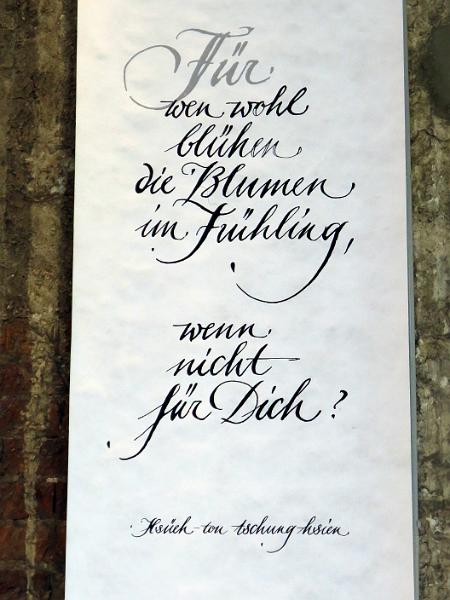 Für
wen wohl
blühen
die Blumen
im Frühling,
wenn
nicht
für Dich?
Hsüeh-tou tschung-hsien